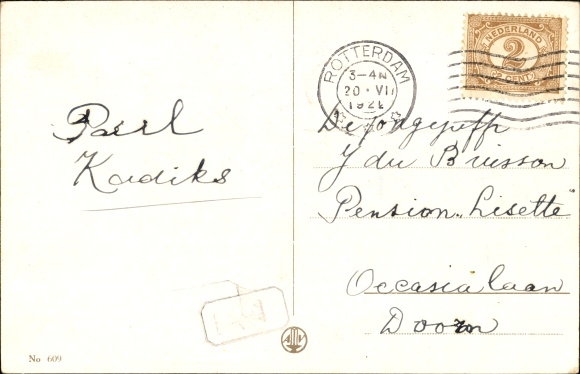 Paul
Kadiks
No 609
ROTTERDAM
3-4N
20 · VII
NEDERLAND
2
2 CENT
J du Buisson
Pension „Lisette"
Occasialaan
Doorn
AV